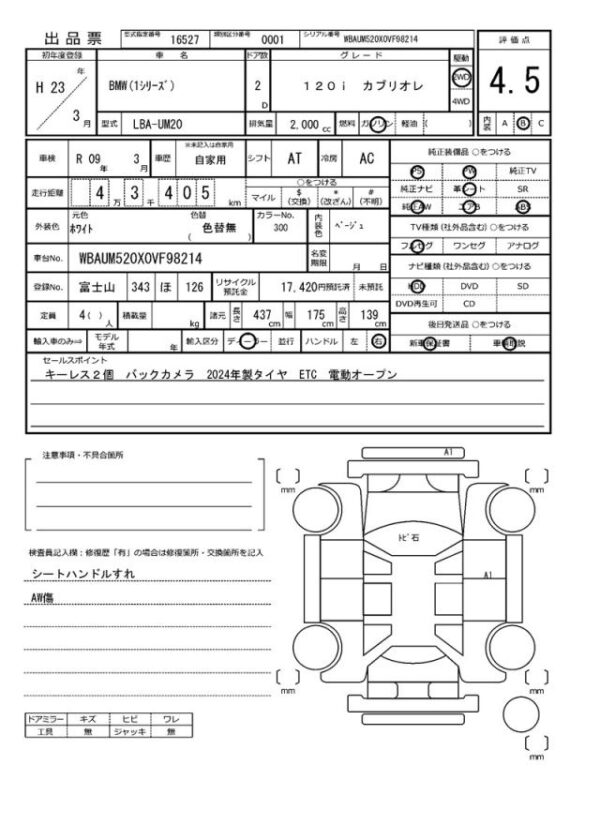 出品票 形式指定番号 16527 類別区分番号 0001 シリアル番号 WBAUM520X0VF98214 評価点
初年度登録 車名 ドア数 グレード 駆動
H 23 年 3 月 BMW(1シリーズ) 2 D 120i カブリオレ 2WD 4WD 4.5
型式 LBA-UM20 排気量 2,000 cc 燃料 ガソリン 軽油 ( ) 内装 A B C
車検 R 09 年 3 月 車歴 ※未記入は自家用 自家用 シフト AT 冷房 AC 純正装備品 ○をつける
PS PW 純正TV
走行距離 4 万 3 千 4 0 5 km ○をつける マイル $ (交換) * (改ざん) # (不明) 純正ナビ 革シート SR
純正AW エアB ABS
外装色 元色 ホワイト 色替 ( 色替無 ) カラーNo. 300 内装色 ベージュ TV種類(社外品含む)○をつける
フルセグ ワンセグ アナログ
車台No. WBAUM520X0VF98214 名変期限 月 日 ナビ種類(社外品含む)○をつける
登録No. 富士山 343 ほ 126 リサイクル預託金 17,420円預託済 未預託 HDD DVD SD
DVD再生可 CD
定員 4( ) 人 積載量 kg 諸元 長さ 437 cm 幅 175 cm 高さ 139 cm 後日発送品 ○をつける
輸入車のみ⇒ モデル年式 年 輸入区分 ディーラー 並行 ハンドル 左 右 新車保証書 車輌取説
セールスポイント
キーレス2個 バックカメラ 2024年製タイヤ ETC 電動オープン
注意事項・不具合箇所
A1
mm mm
検査員記入欄：修復歴「有」の場合は修復箇所・交換箇所を記入
ﾄﾋﾞ石
シートハンドルすれ
A1
AW傷
mm mm
ドアミラー キズ ヒビ ワレ
工具 無 ジャッキ 無
mm